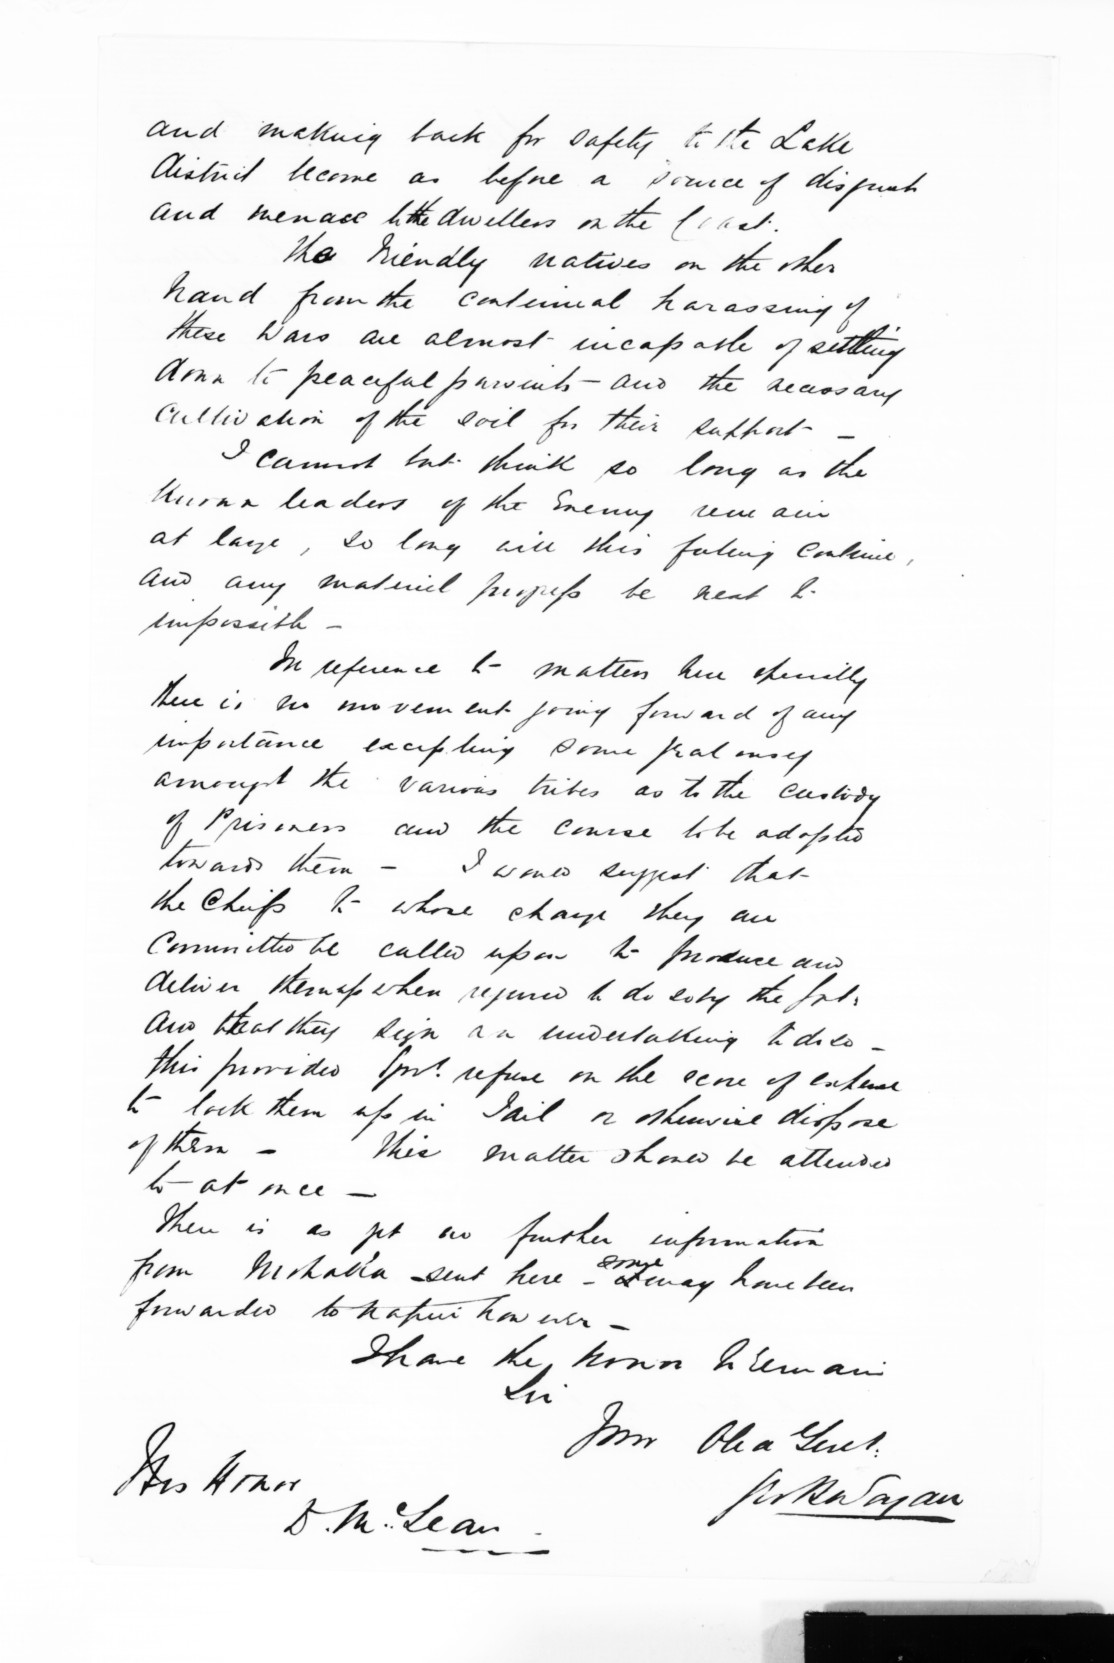 and making back for safety to the Lake
district become as before a source of disquiet
and menace to the dwellers on the Coast.
The Friendly natives on the other
hand from the continual harassing of
these Wars are almost incapable of settling
down to peaceful pursuits - and the necessary
cultivation of the soil for their support -
I cannot but think so long as the
Known leaders of the Enemy remain
at large, so long will this feeling continue,
and any material progress be next to
impossible -
In reference to matters here specially
there is no movement going forward of any
importance excepting some jealousy
amongst the various tribes as to the custody
of Prisoners and the course to be adopted
towards them - I would suggest that
the Chiefs to whose charge they are
Committed be called upon to produce and
deliver them up when required to do so by the Govt.
and that they sign an undertaking to do so -
this provided Govt. refuse on the score of expense
to lock them up in Jail or otherwise dispose
of them - This matter should be attended
to at once -
There is as yet no further information
from Mohaka sent here - some may have been
forwarded to Napier however -
I have the honor to remain
Sir
Your Obed Servt.
His Honor
D. McLean